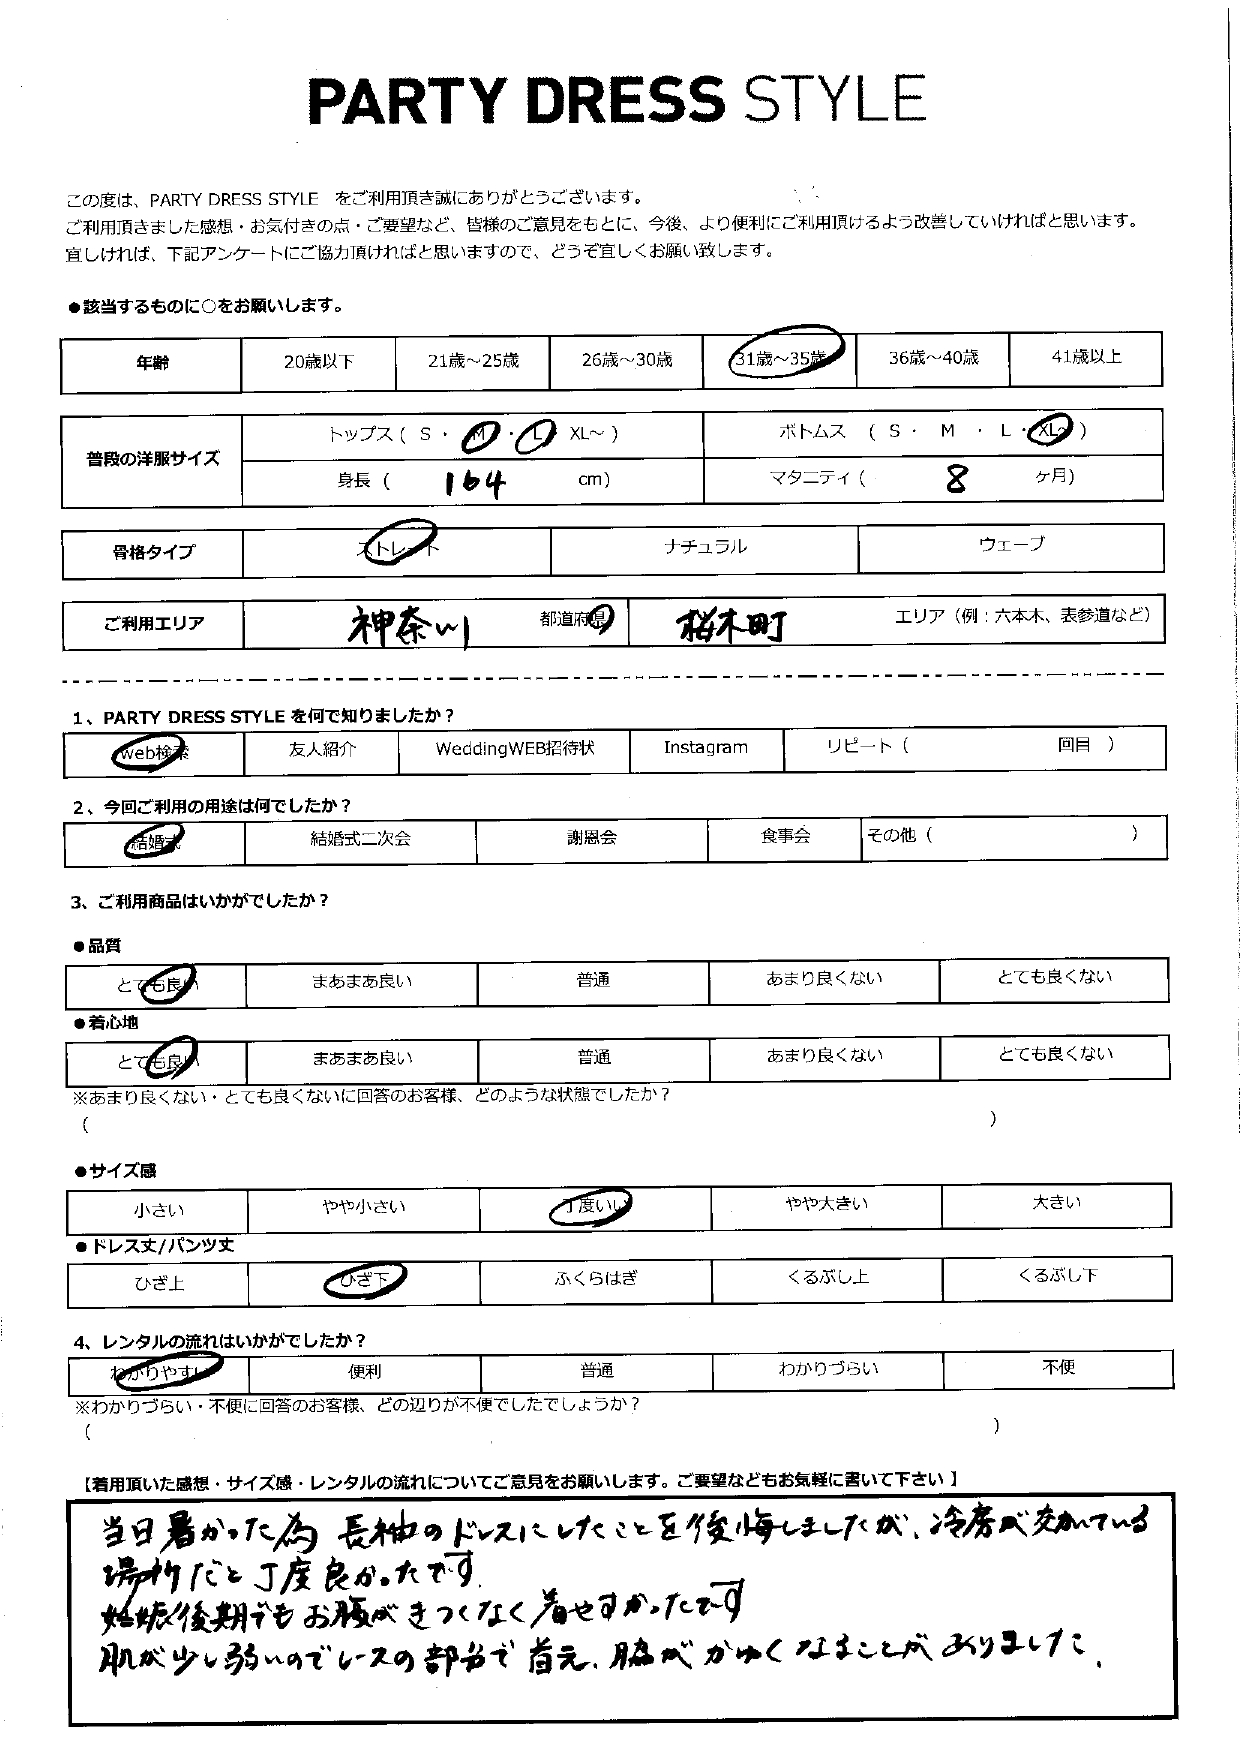 PARTY DRESS STYLE
この度は、PARTY DRESS STYLE をご利用頂き誠にありがとうございます。
ご利用頂きました感想・お気付きの点・ご要望など、皆様のご意見をもとに、今後、より便利にご利用頂けるよう改善していければと思います。
宜しければ、下記アンケートにご協力頂ければと思いますので、どうぞ宜しくお願い致します。
●該当するものに○をお願いします。
年齢 20歳以下 21歳～25歳 26歳～30歳 31歳～35歳 36歳～40歳 41歳以上
普段の洋服サイズ トップス ( S ・ M ・ L XL～ ) ボトムス ( S ・ M ・ L ・ XL～ )
身長 ( 164 cm) マタニティ ( 8 ヶ月)
骨格タイプ ストレート ナチュラル ウェーブ
ご利用エリア 神奈川 都道府県 桜木町 エリア（例：六本木、表参道など）
1、PARTY DRESS STYLE を何で知りましたか？
Web検索 友人紹介 WeddingWEB招待状 Instagram リピート ( 回目 )
2、今回ご利用の用途は何でしたか？
結婚式 結婚式二次会 謝恩会 食事会 その他 ( )
3、ご利用商品はいかがでしたか？
●品質
とても良い まあまあ良い 普通 あまり良くない とても良くない
●着心地
とても良い まあまあ良い 普通 あまり良くない とても良くない
※あまり良くない・とても良くないに回答のお客様、どのような状態でしたか？
( )
●サイズ感
小さい やや小さい 丁度いい やや大きい 大きい
●ドレス丈/パンツ丈
ひざ上 ひざ下 ふくらはぎ くるぶし上 くるぶし下
4、レンタルの流れはいかがでしたか？
わかりやすい 便利 普通 わかりづらい 不便
※わかりづらい・不便に回答のお客様、どの辺りが不便でしたでしょうか？
( )
【着用頂いた感想・サイズ感・レンタルの流れについてご意見をお願いします。ご要望などもお気軽に書いて下さい】
当日暑かった為 長袖のドレスにしたことを後悔しましたが、冷房が効いている
場所だと丁度良かったです。
妊娠後期でもお腹がきつくなく着やすかったです
肌が少し弱いのでレースの部分で首元、脇がかゆくなることがありました。